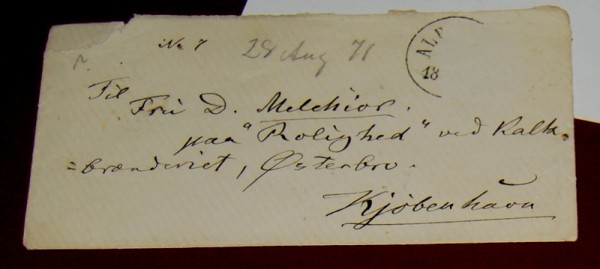 No 7 28 Aug 71
AL
18
Til
Fru D. Melchior.
paa "Rolighed" ved Kalk=
=brænderiet, Østerbro.
Kjöbenhavn